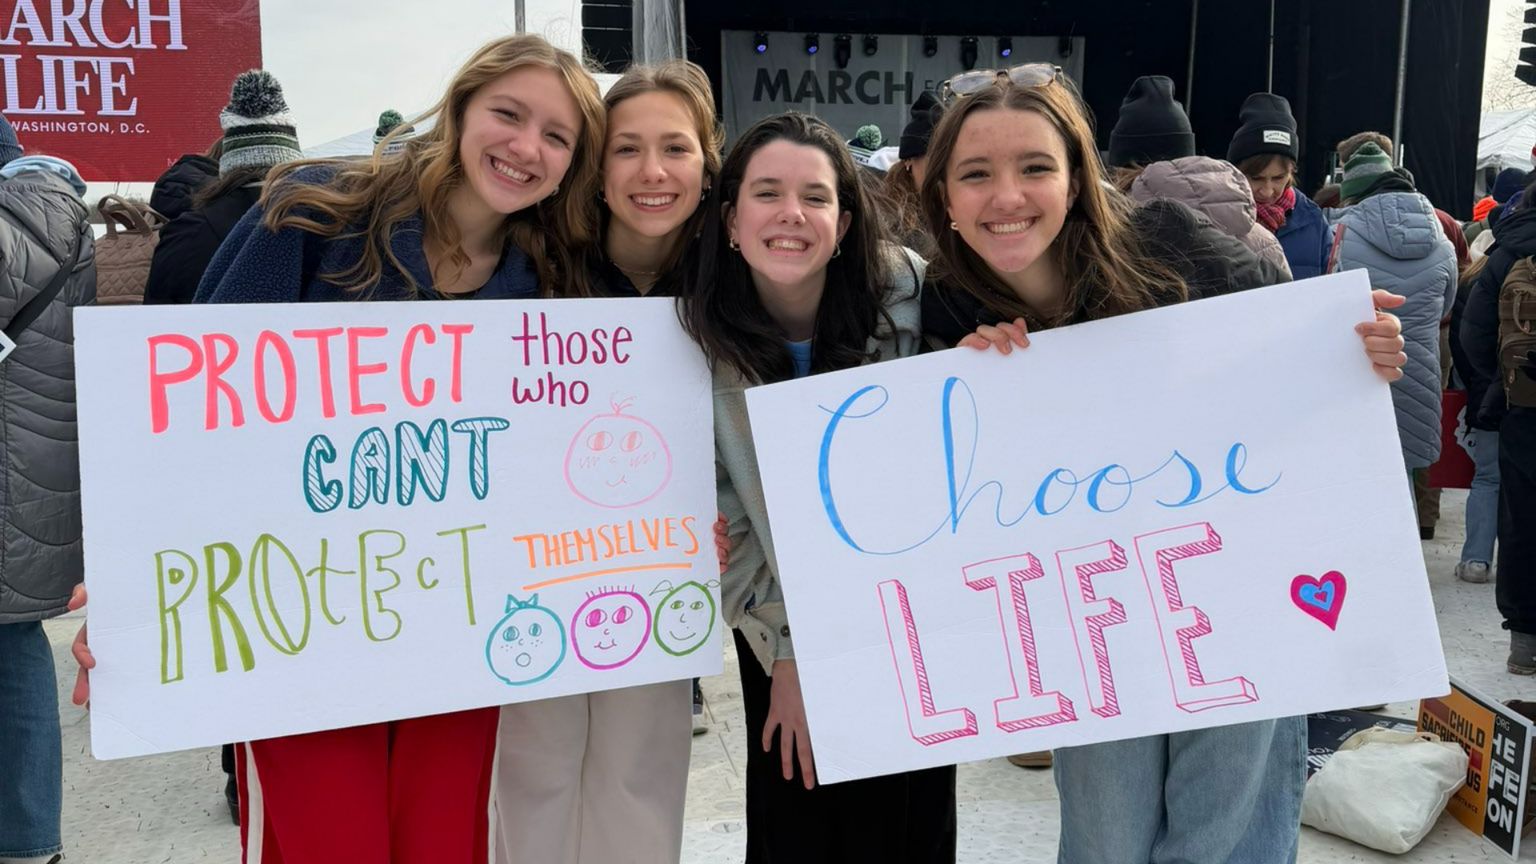 ARCH
LIFE
WASHINGTON, D.C.
MARCH FO
PROTECT those
who
CANT
PROtEcT THEMSELVES
Choose
LIFE
CHILD
SACRIFICE
US
ORG
HE
FE
ON